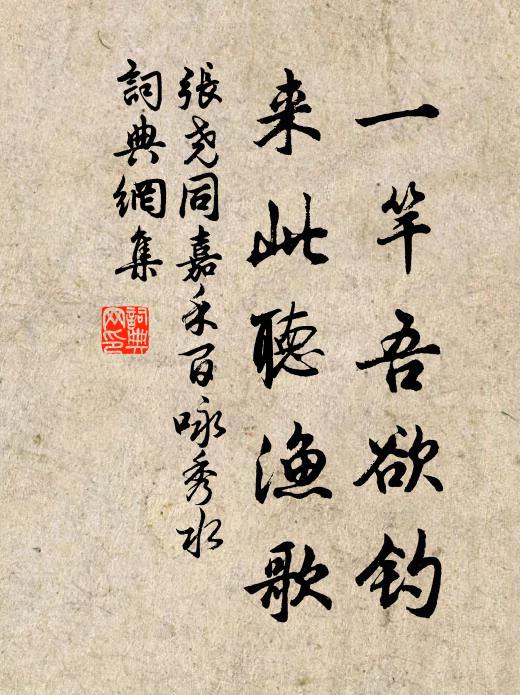 一竿吾欲钓
来此聽漁歌
張堯同嘉禾百咏秀水
詞典網集
詞典
网印